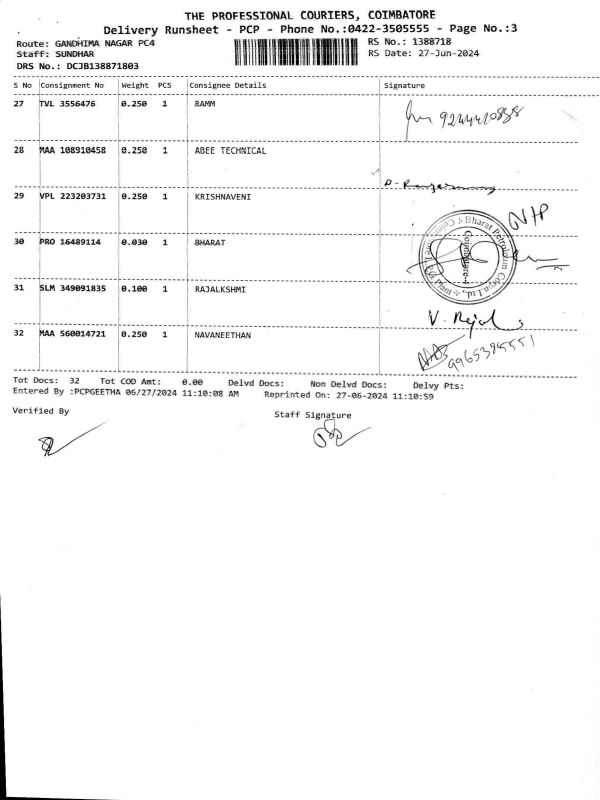 THE PROFESSIONAL COURIERS, COIMBATORE
Delivery Runsheet - PCP - Phone No.:0422-3505555 - Page No.:3
Route: GANDHIMA NAGAR PC4 RS No.: 1388718
Staff: SUNDHAR RS Date: 27-Jun-2024
DRS No.: DCJB138871803
S No Consignment No Weight PCS Consignee Details Signature
27 TVL 3556476 0.250 1 RAMM
28 MAA 108910458 0.250 1 ABEE TECHNICAL
29 VPL 223203731 0.250 1 KRISHNAVENI
30 PRO 16489114 0.030 1 BHARAT
Bharat Petroleum Corpn Ltd.,
Coimbatore
31 SLM 349091835 0.100 1 RAJALKSHMI
32 MAA 560014721 0.250 1 NAVANEETHAN
9965395551
Tot Docs: 32 Tot COD Amt: 0.00 Delvd Docs: Non Delvd Docs: Delvy Pts:
Entered By :PCPGEETHA 06/27/2024 11:10:08 AM Reprinted On: 27-06-2024 11:10:59
Verified By
Staff Signature